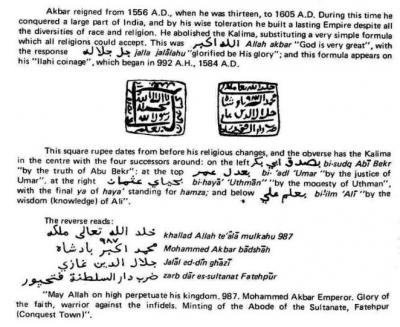 Akbar reigned from 1556 A.D., when he was thirteen, to 1605 A.D. During this time he
conquered a large part of India, and by his wise toleration he built a lasting Empire despite all
the diversities of race and religion. He abolished the Kalima, substituting a very simple formula
which all religions could accept. This was الله اكبر Allah akbar "God is very great", with
the response جل جلاله jalla jalālahu "glorified be His glory"; and this formula appears on
his "Ilahi coinage", which began in 992 A.H., 1584 A.D.
This square rupee dates from before his religious changes, and the obverse has the Kalima
in the centre with the four successors around: on the left بصدق ابى بكر bi-sudq Abī Bekr
"by the truth of Abu Bekr"; at the top بعدل عمر bi-'adl 'Umar "by the justice of
Umar", at the right بحياي عثمان bi-hayā' 'Uthmān "by the modesty of Uthman",
with the final ya of hayai standing for hamza; and below بعلم علي bi-'ilm 'Alī "by the
wisdom (knowledge) of Ali".
The reverse reads:
خلد الله تعالى ملكه khallad Allah te'ālā mulkahu 987
محمد اكبر بادشاه ٩٨٧ Mohammed Akbar bādshāh
جلال الدين غازي Jalāl ed-dīn ghāzī
ضرب دار السلطنة فتحپور zarb dār es-sultanat Fatehpūr
"May Allah on high perpetuate his kingdom. 987. Mohammed Akbar Emperor. Glory of
the faith, warrior against the infidels. Minting of the Abode of the Sultanate, Fatehpur
(Conquest Town)".